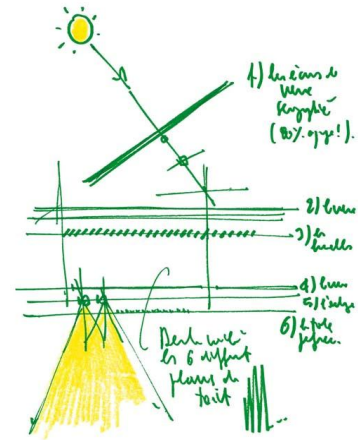 1) les écrans de
verre
sérigraphié
(80% opaque!).
2) le verre
3) les
lamelles
4) le verre
5)
6) la tôle
perforée.
les 6 différents
plans du
toit